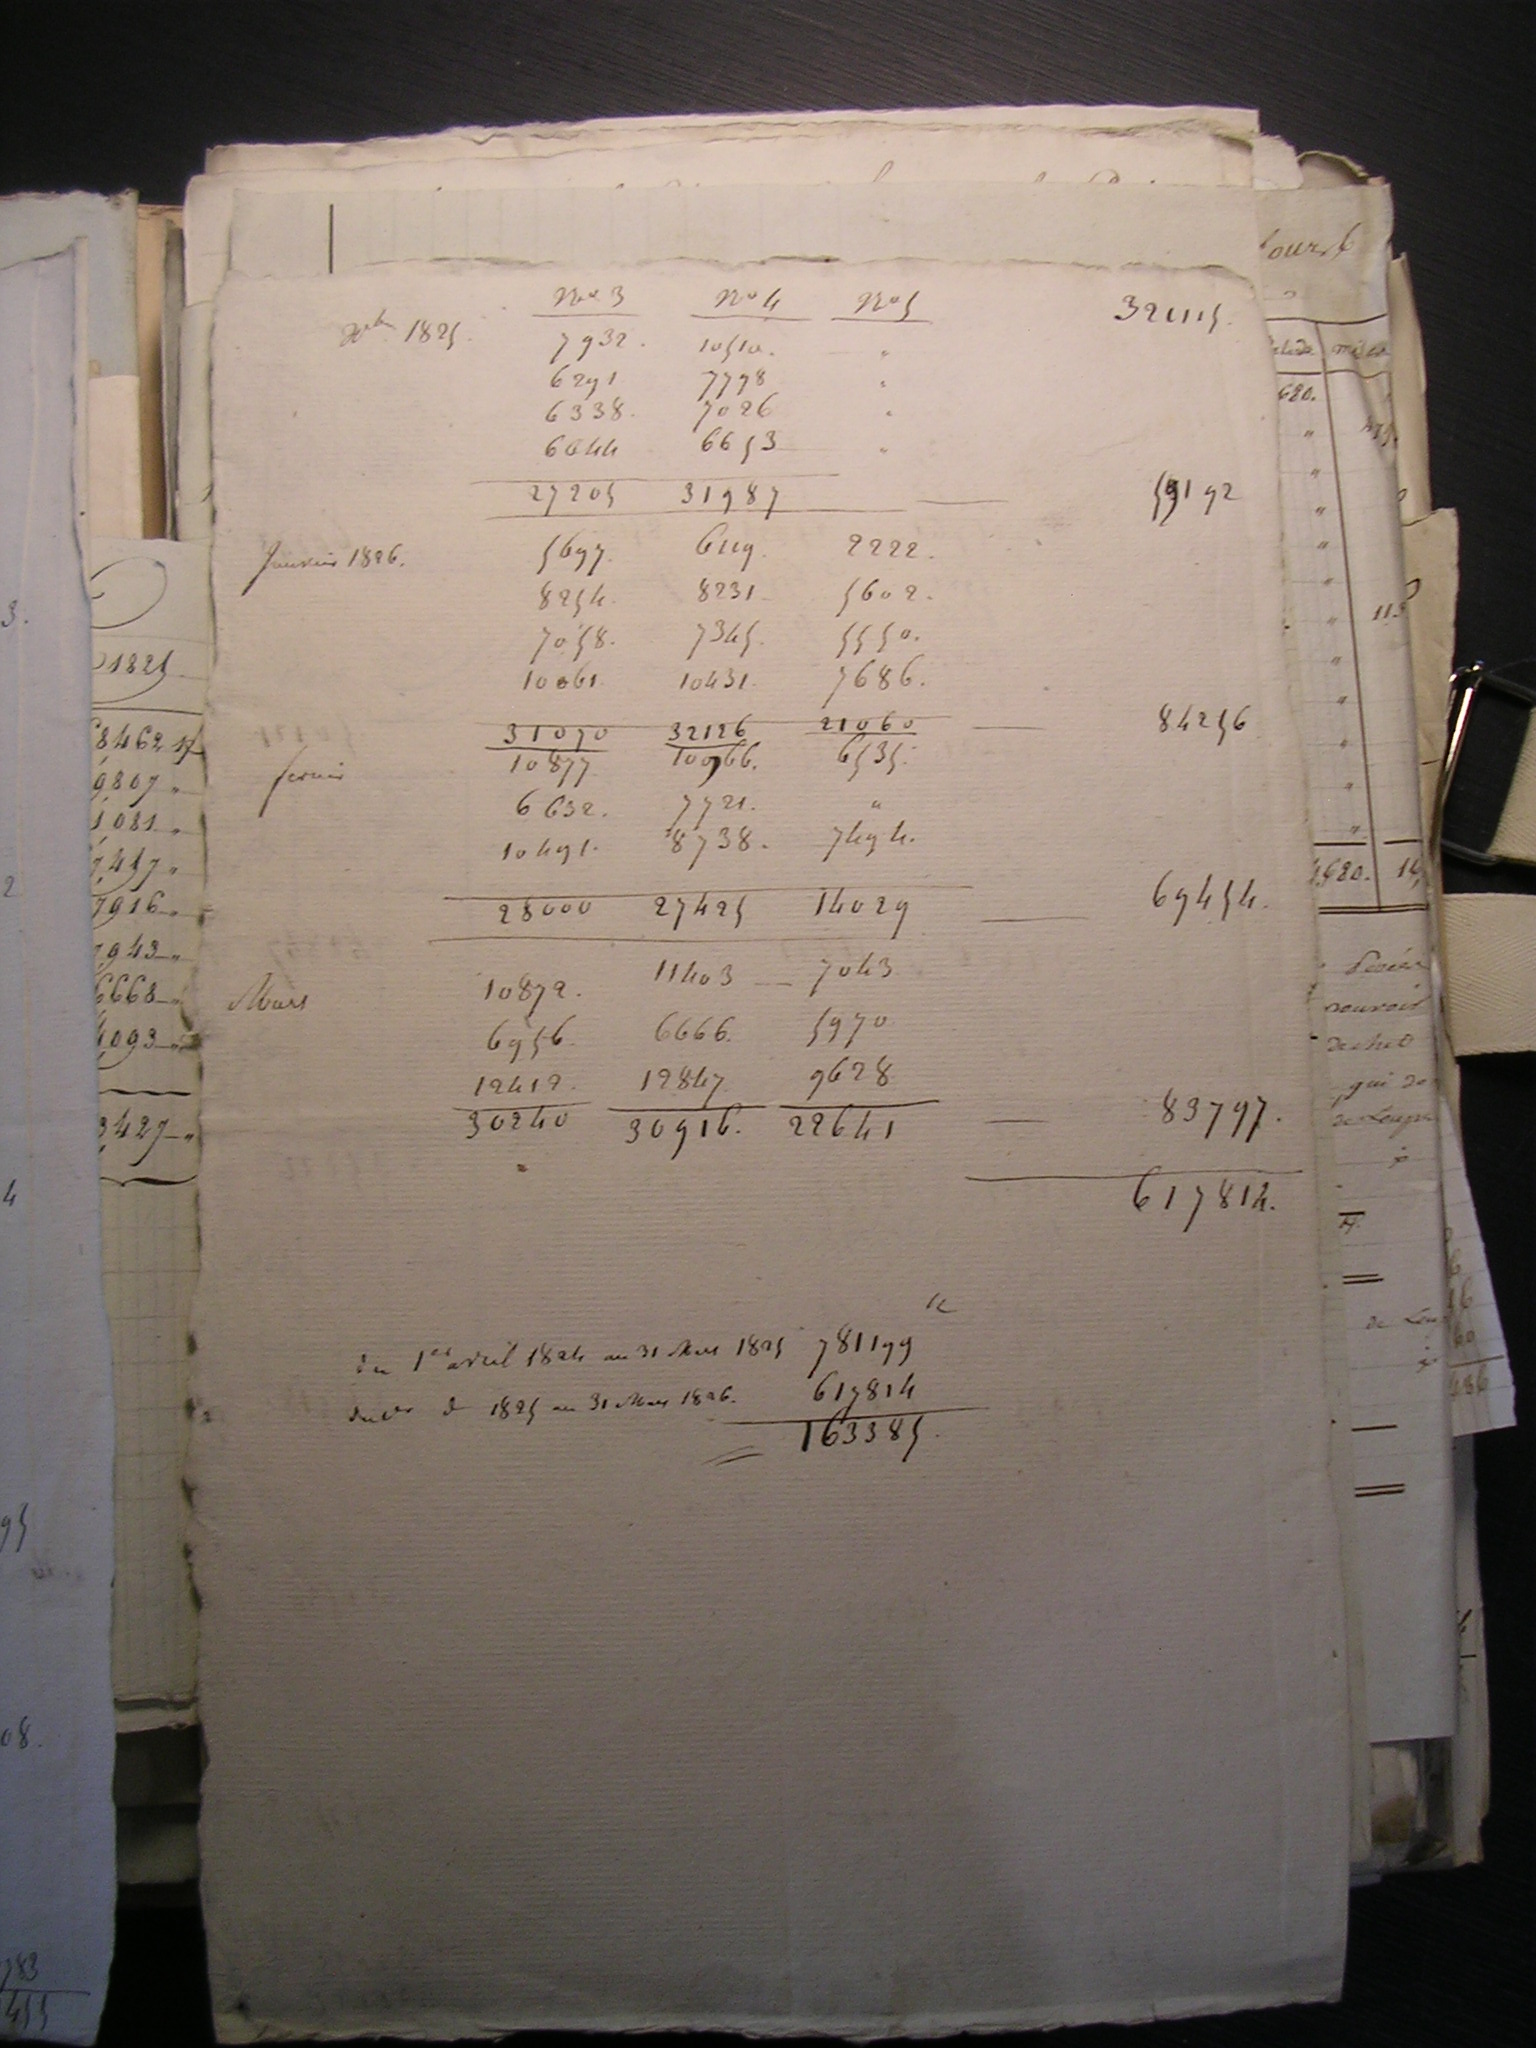 No 3 No 4 No 5 321115.
Xbre 1825. 7932. 10510. "
6291 7798 "
6338. 7026 "
6644 6653 "
27205 31987 — 59192
Janvier 1826. 5697. 6119. 2222.
8254. 8231. 5602.
7058. 7345. 5550.
10061. 10431. 7686.
31070 32126 21060 — 84256
fevrier 10877 10966. 6535.
6632. 7721. "
10491. 8738. 7494.
28000 27425 14029 — 69454.
Mars 10872. 11403 — 7043
6956. 6666. 5970
12412. 12847 9628
30240 30916. 22641 — 83797.
617814.
K
du 1er avril 1824 au 31 Mars 1825 781199
du do d 1825 au 31 Mars 1826. 617814
163385.
1825
8462
9807 "
1081 "
7916 "
7943 "
6668 "
4093 "
3427 "
680.
113
4680.
pouvoir
qui de